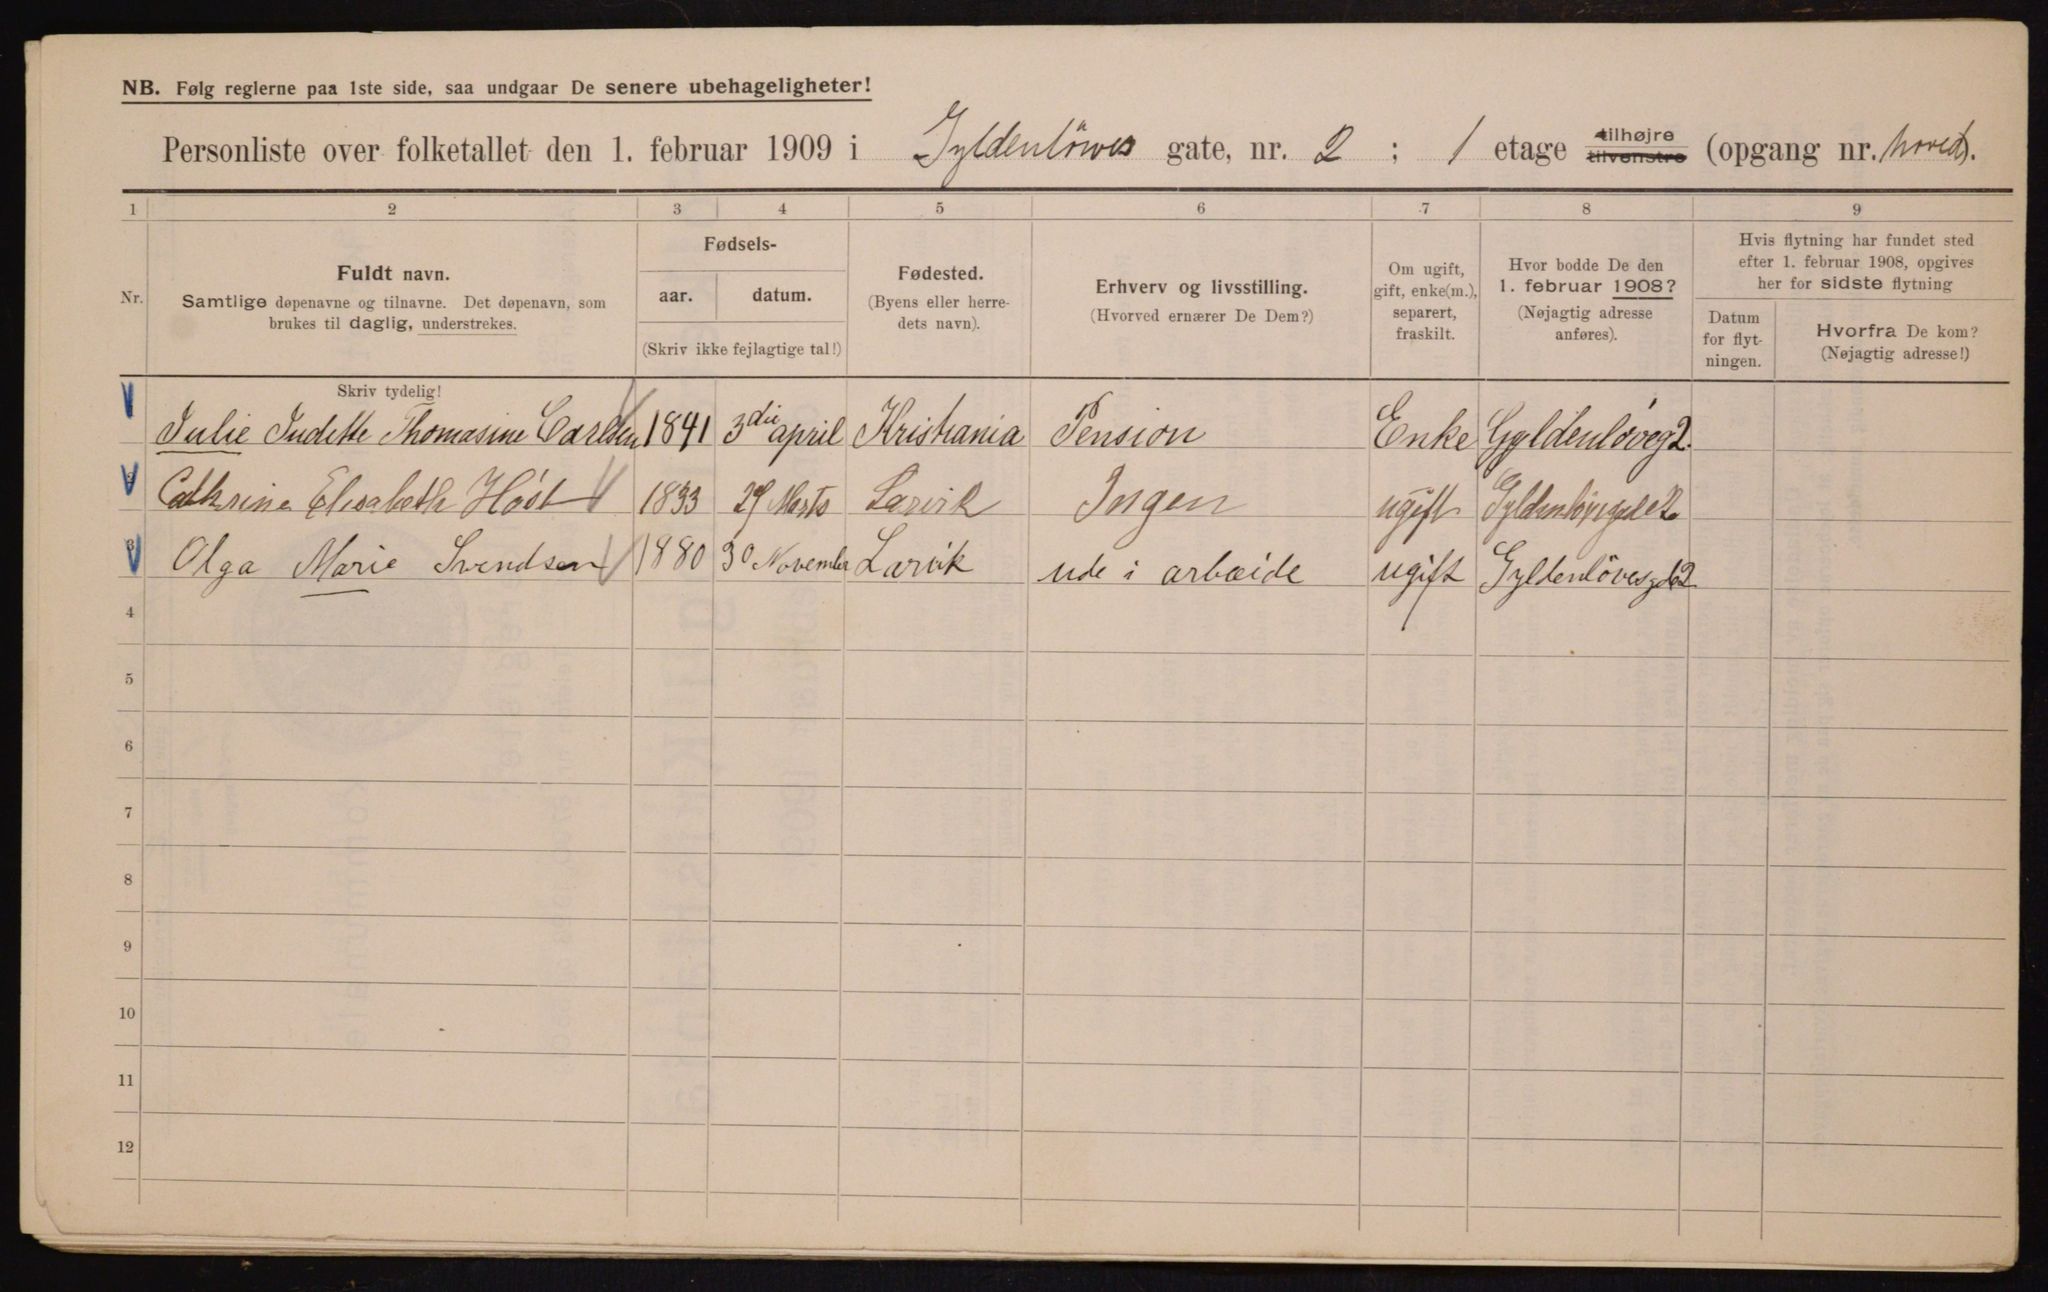 NB. Følg reglerne paa 1ste side, saa undgaar De senere ubehageligheter!
Personliste over folketallet den 1. februar 1909 i Gyldenlöves gate, nr. 2 ; 1 etage tilhøjre tilvenstre (opgang nr. hoved).
1 2 3 4 5 6 7 8 9
Nr.
Fuldt navn.
Samtlige døpenavne og tilnavne. Det døpenavn, som
brukes til daglig, understrekes.
Skriv tydelig!
Fødsels-
aar. datum.
(Skriv ikke fejlagtige tal!)
Fødested.
(Byens eller herre-
dets navn).
Erhverv og livsstilling.
(Hvorved ernærer De Dem?)
Om ugift,
gift, enke(m.),
separert,
fraskilt.
Hvor bodde De den
1. februar 1908?
(Nøjagtig adresse
anføres).
Hvis flytning har fundet sted
efter 1. februar 1908, opgives
her for sidste flytning
Datum
for flyt-
ningen.
Hvorfra De kom?
(Nøjagtig adresse!)
Julie Judette Thomasine Carlsen 1841 3die april Kristiania Pension Enke Gyldenløveg 2.
2 Cathrine Elisabeth Höst 1833 29 Marts Larvik Ingen ugift
3 Olga Marie Svendsen 1880 30 November Larvik ude i arbeide ugift Gyldenlövesgd 2
4
5
6
7
8
9
10
11
12